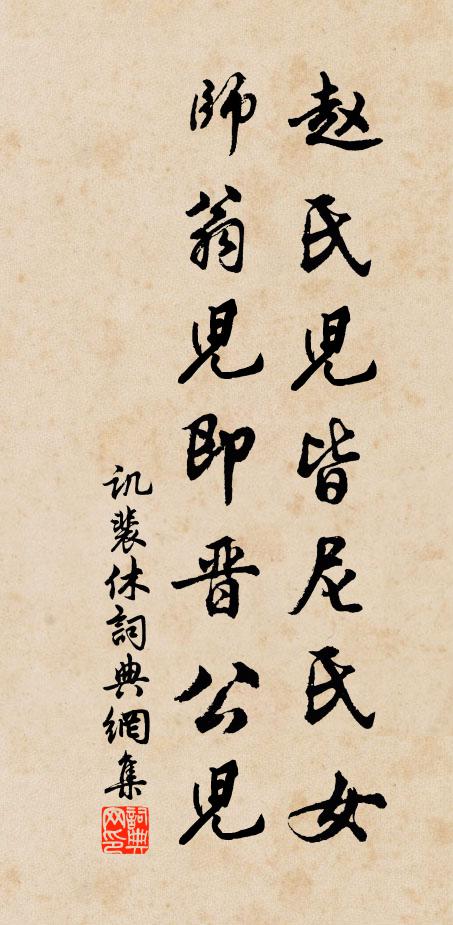 赵氏児皆尼氏女
師翁児即晋公児
讥裴休詞典網集
詞典
网印